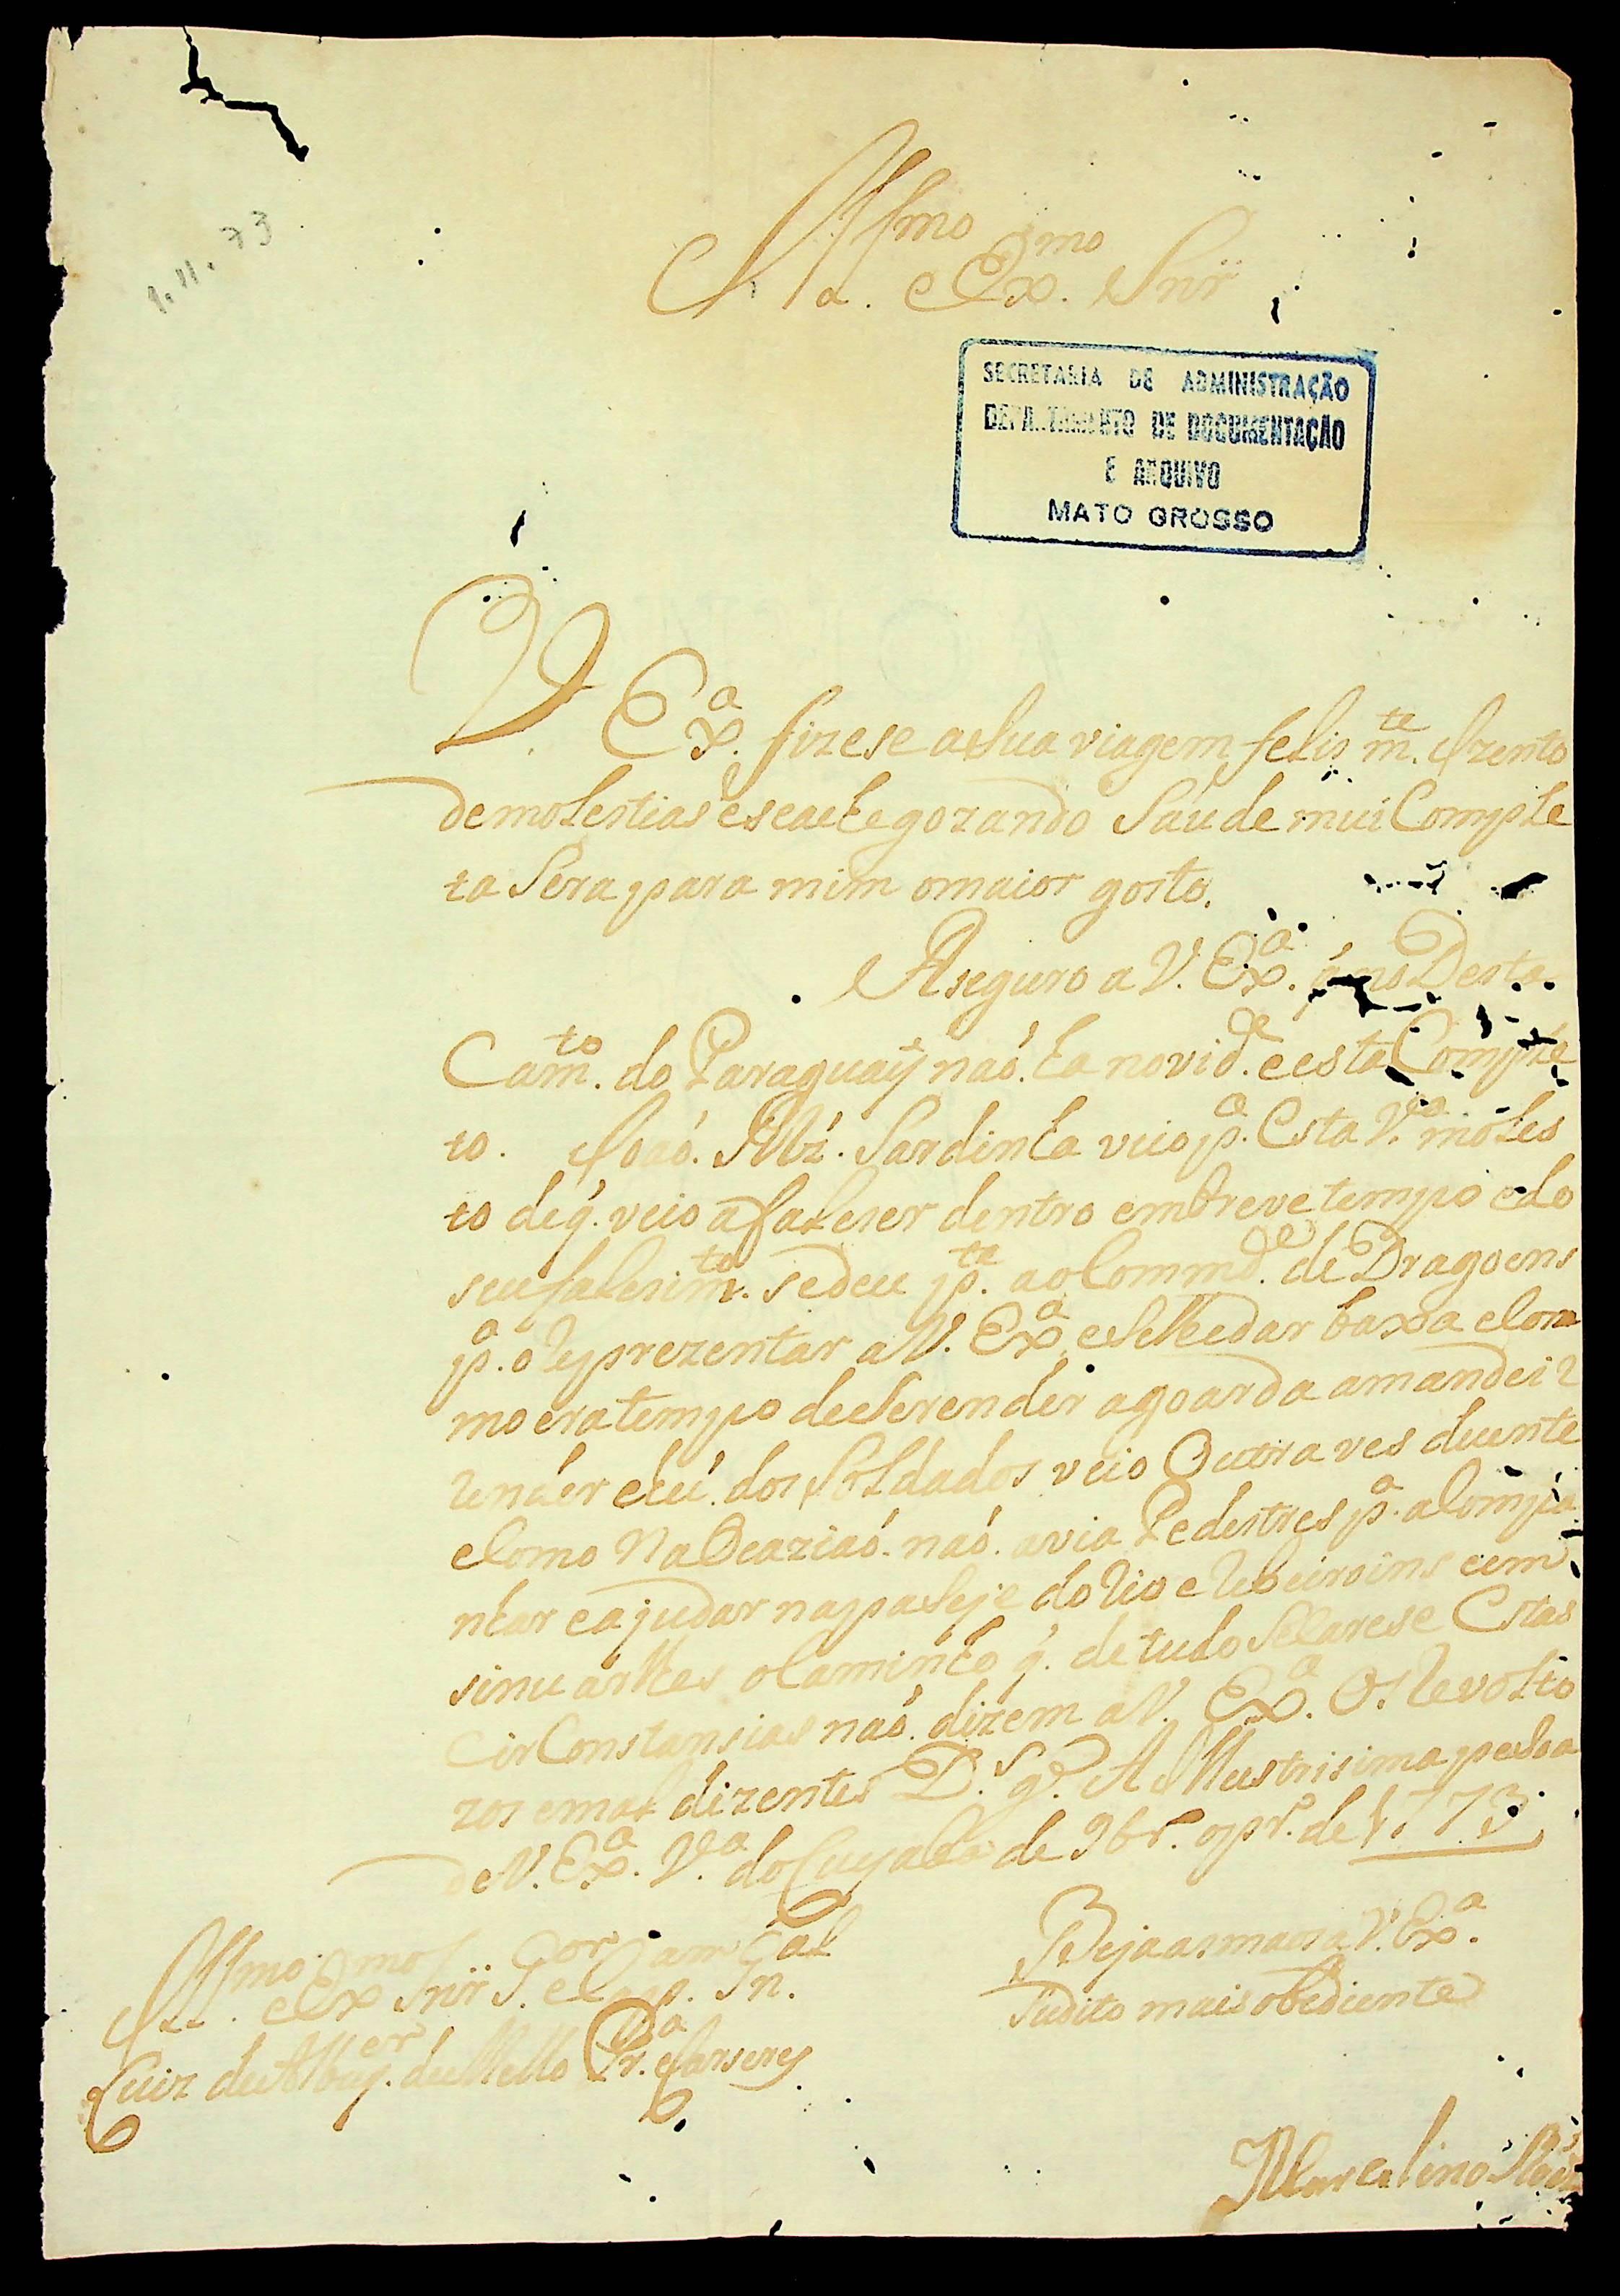 1.11.73
Illmo. e Exmo. Snr̃
SECRETARIA DE ADMINISTRAÇÃO
DEPARTAMENTO DE DOCUMENTAÇÃO
E ARQUIVO
MATO GROSSO
V. Exª. fizese asua viagem felis mte. Izento
demolestias eseache gozando Saude mui Comple
ta Sera para mim omaior gosto.
Aseguro a V. Exª. q̃ no Desta
Camto. do Paraguaÿ naó. ha novide. eesta Comple
to. Joaó. Mž. Sardinha veio pª. Esta Vª. moles
to deq̃. veio afaleser dentro embreve tempo edo
seu falesimto. sedeu pte. ao Commde. de Dragoens
pª. o Reprezentar aV. Exª eselhedar baxa eCom
mo era tempo deserender agoarda amandei R
Render ehú. dos Soldados veio Outra ves duente
eComo Na Ocaziaó. naó. avia Pedestres pª. aCompa
nhar eajudar napasaje do Rio e Ribeiroins eem
sinuarlhes oCaminho q̃. de tudo Selarese Estas
CirConstansias naó. dizem aV. Exª. Os Revolto
zos emal dizentes D.s g.e A Illustrisima pesoa
de V. Exª. Vª. do Cuyaba de 9br. opr. de 1773
Beja as maos a V. Exª.
Sudito mais obediente
Illmo. e Exmo Snr̃ Gor. e Cap. Gal
Luiz de Albuqer. de Mello Prª. eCarseres
Marcelino